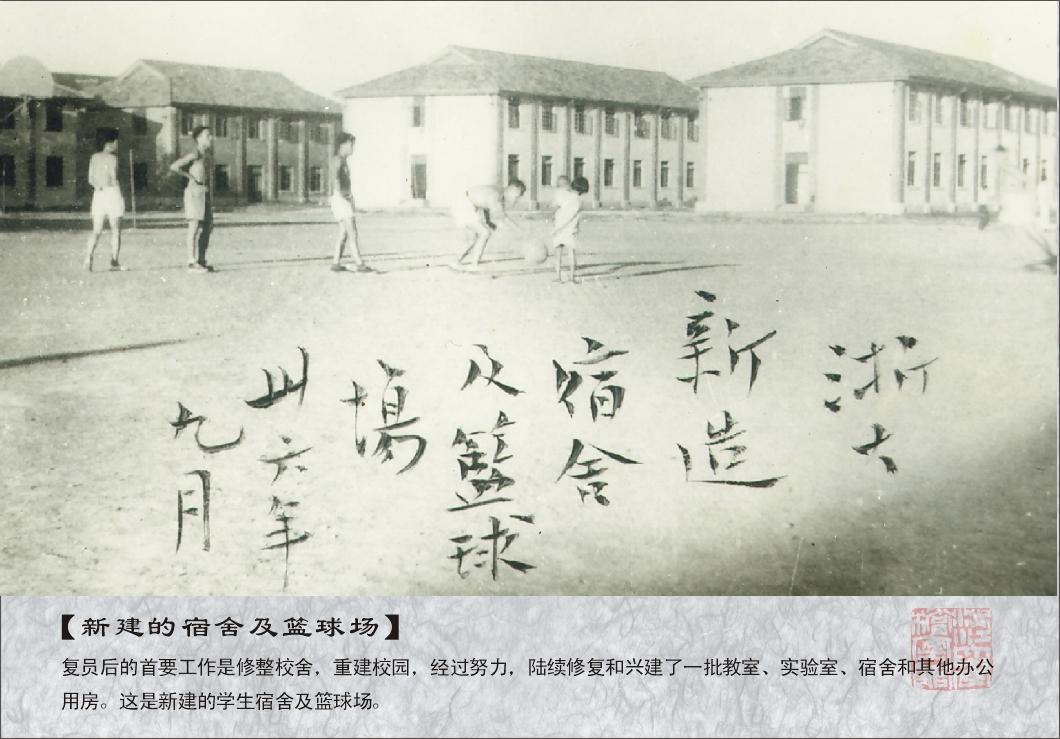 浙大
新造
宿舍
及籃球
場
卅六年
九月
【新建的宿舍及篮球场】
复员后的首要工作是修整校舍，重建校园，经过努力，陆续修复和兴建了一批教室、实验室、宿舍和其他办公
用房。这是新建的学生宿舍及篮球场。